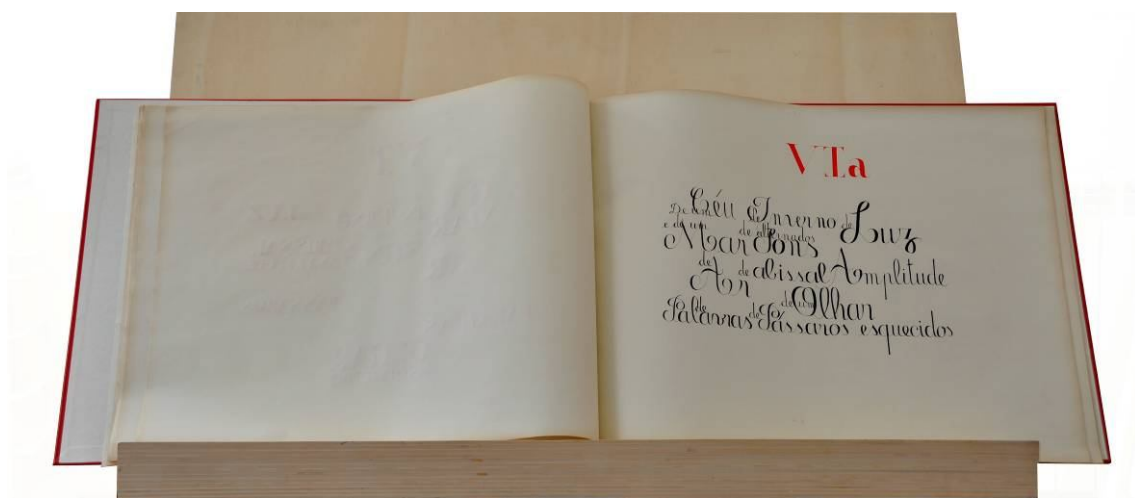 VIa
De um Céu de Inverno de Luz
e de um Mar de alternados Tons
de Ar de abissal Amplitude
de um Olhar
de Palavras de Pássaros esquecidos